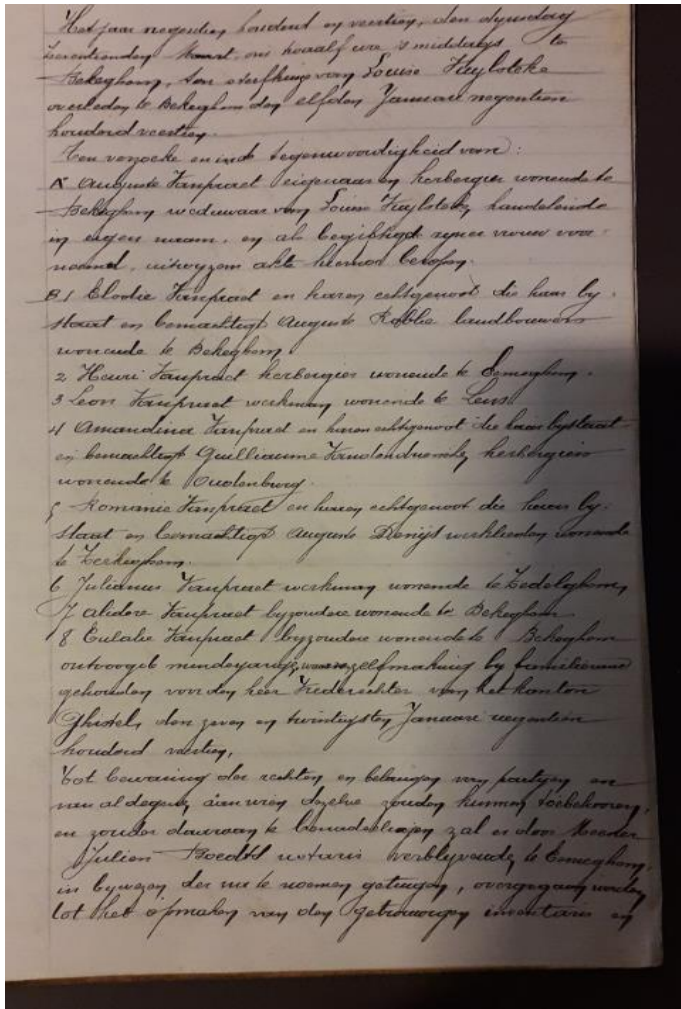 Het jaar negentien hondert en veertien, den dynsdag
zeventienden Maart, om twaalf ure 's middags te
Bekeghem, ten sterfhuize van Louise Huylebeke
overleden te Bekeghem den elfden Januari negentien
honderd veertien.
Ten verzoeke en in de tegenwoordigheid van:
A Auguste Vanpraet eigenaar en herbergier wonende te
Bekeghem weduwaar van Louise handelende
in eigen naam, en als begiftigde zyner vrouw voor-
noemd, uitwyzens akte hiervoor
B. 1 Elodie Vanpraet en haren echtgenoot die haar by-
staat en bemachtigt Auguste landbouwers
wonende te Bekeghem
2 Henri Vanpraet herbergier wonende te Eerneghem.
3 Leon Vanpraet werkman wonende te Lens
4 Amandina Vanpraet en haren echtgenoot die haar bystaat
en bemachtigt Guilliaume herbergiers
wonende te Oudenburg.
5 Romanie Vanpraet en haren echtgenoot die haar by-
staat en bemachtigt Auguste Denijs werklieden wonende
te Zerkeghem.
6 Julianus Vanpraet werkman wonende te Zedelghem,
7 Alidore Vanpraet byzondere wonende te Bekeghem
8 Eulalie Vanpraet byzondere wonende te Bekeghem
ontvoogde minderjarige, zelfmaking by familieraad
gehouden voor den heer Vrederechter van het kanton
Ghistel, den zeven en twintigsten Januari negentien
honderd veertien,
Tot bewaring der rechten en belangen van partyen en
van al degene aan wien dezelve zouden kunnen toebehooren,
en zonder daaraan te benadeeligen zal er door Meester
Julien Boedts notaris verblyvende te Eerneghem,
in bywezen der na te noemen getuigen, overgegaan worden
tot het opmaken van den getrouwen inventaris en